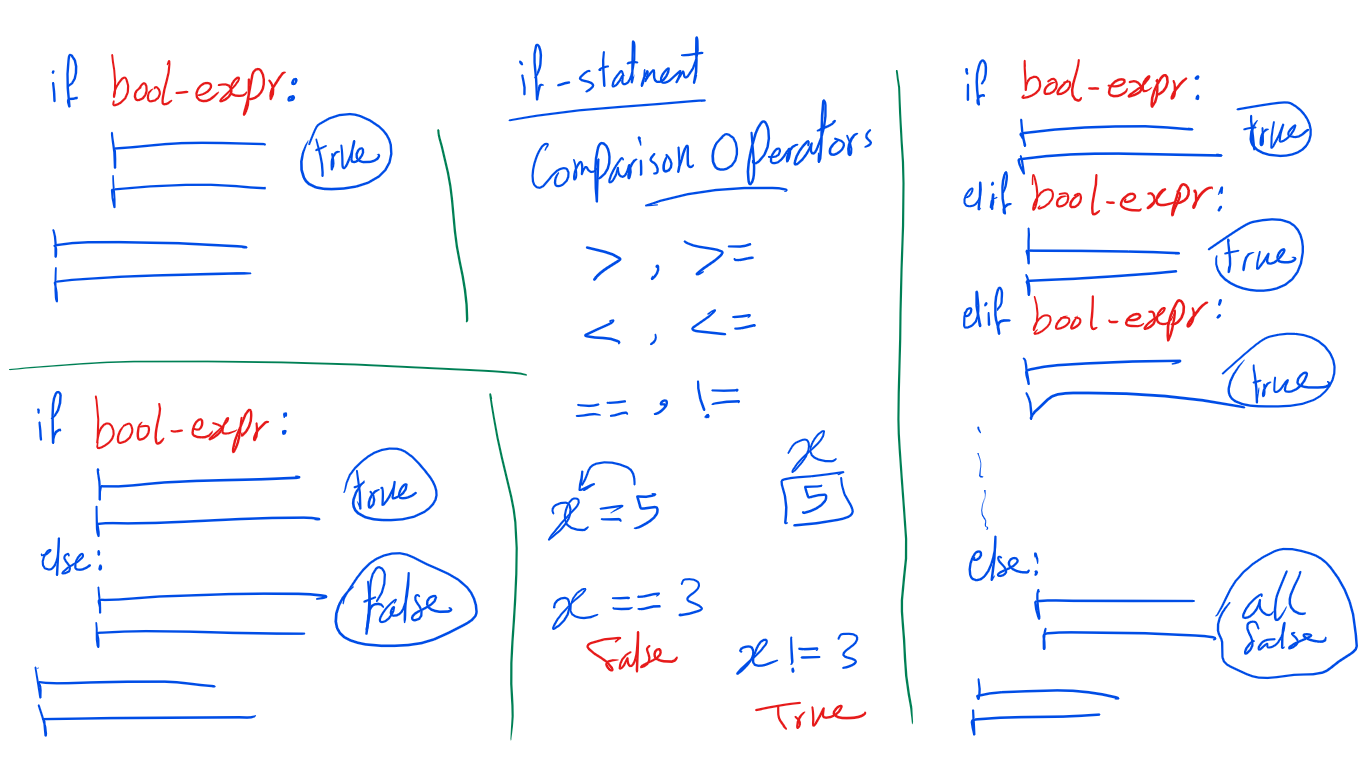 if bool-expr:
true
if bool-expr:
true
else:
false
if-statment
Comparison Operators
> , >=
< , <=
== , !=
x
x = 5
5
x == 3
False
x != 3
True
if bool-expr:
true
elif bool-expr:
true
elif bool-expr:
true
else:
all
false